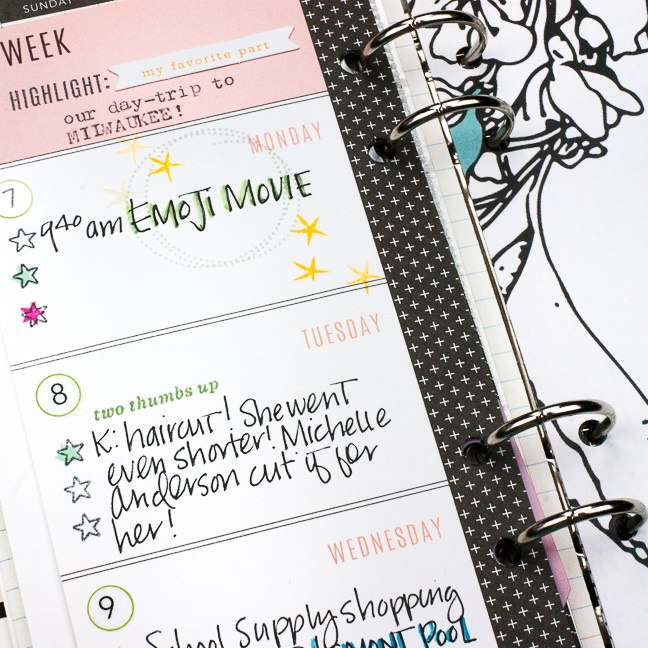 SUNDAY
WEEK
HIGHLIGHT: my favorite part
our day-trip to
MILWAUKEE!
MONDAY
7
9⁴⁰ am EMOJI MOVIE
TUESDAY
8
two thumbs up
K: haircut! She went
even shorter! Michelle
Anderson cut it for
her!
WEDNESDAY
9
School Supply shopping
POOL